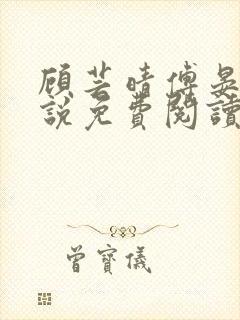 顾芸晴傅晏
說免費閱讀
曾寶儀